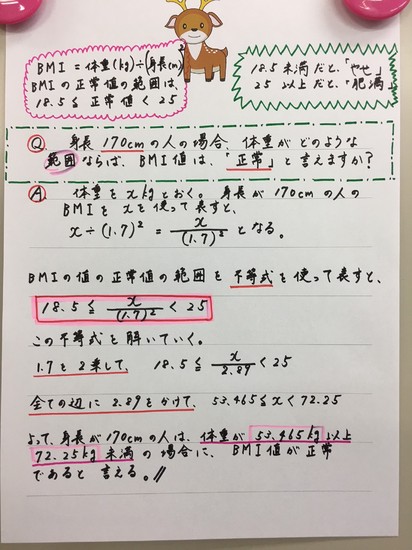 BMI = 体重(kg)÷(身長(m))²
BMIの正常値の範囲は、
18.5 ≦ 正常値 < 25
18.5 未満だと、「やせ」
25 以上だと、「肥満」
Q. 身長 170cmの人の場合、体重がどのような
範囲ならば、BMI値は、「正常」と言えますか?
A. 体重を x kg とおく。身長が170cmの人の
BMIを x を使って表すと、
x ÷ (1.7)² = x/(1.7)² となる。
BMIの値の正常値の範囲を不等式を使って表すと、
18.5 ≦ x/(1.7)² < 25
この不等式を解いていく。
1.7を2乗して、 18.5 ≦ x/2.89 < 25
全ての辺に2.89をかけて、 53.465 ≦ x < 72.25
よって、身長が170cmの人は、体重が 53.465kg 以上
72.25kg 未満の場合に、BMI値が正常
であると言える。//